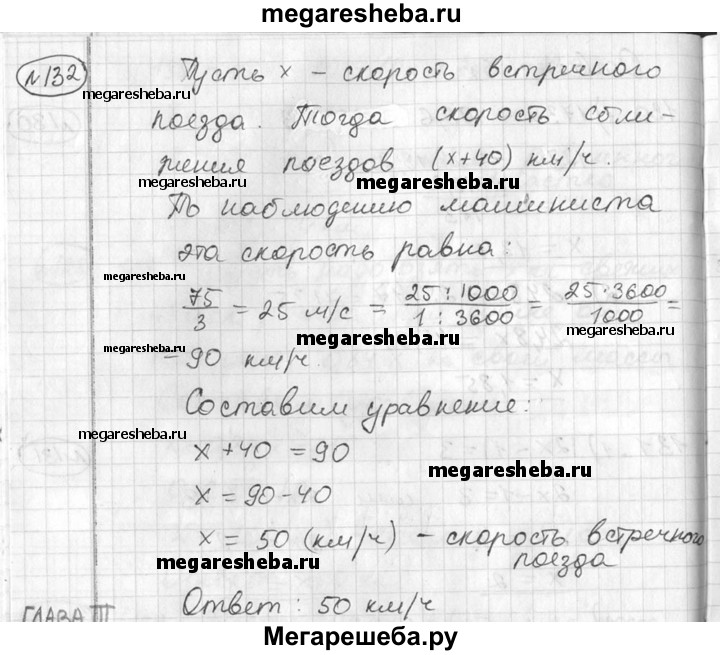 megaresheba.ru
№132
Пусть x – скорость встречного
megaresheba.ru
поезда. Тогда скорость сбли-
megaresheba.ru
жения поездов (x+40) км/ч.
megaresheba.ru
megaresheba.ru
По наблюдению машиниста
эта скорость равна:
megaresheba.ru
75/3 = 25 м/с = 25:1000/1:3600 = 25·3600/1000 =
megaresheba.ru
megaresheba.ru
megaresheba.ru
= 90 км/ч.
Составим уравнение:
megaresheba.ru
x + 40 = 90
megaresheba.ru
x = 90-40
x = 50 (км/ч) – скорость встречного
поезда
megaresheba.ru
Ответ: 50 км/ч
ГЛАВА III
Мегарешеба.ру